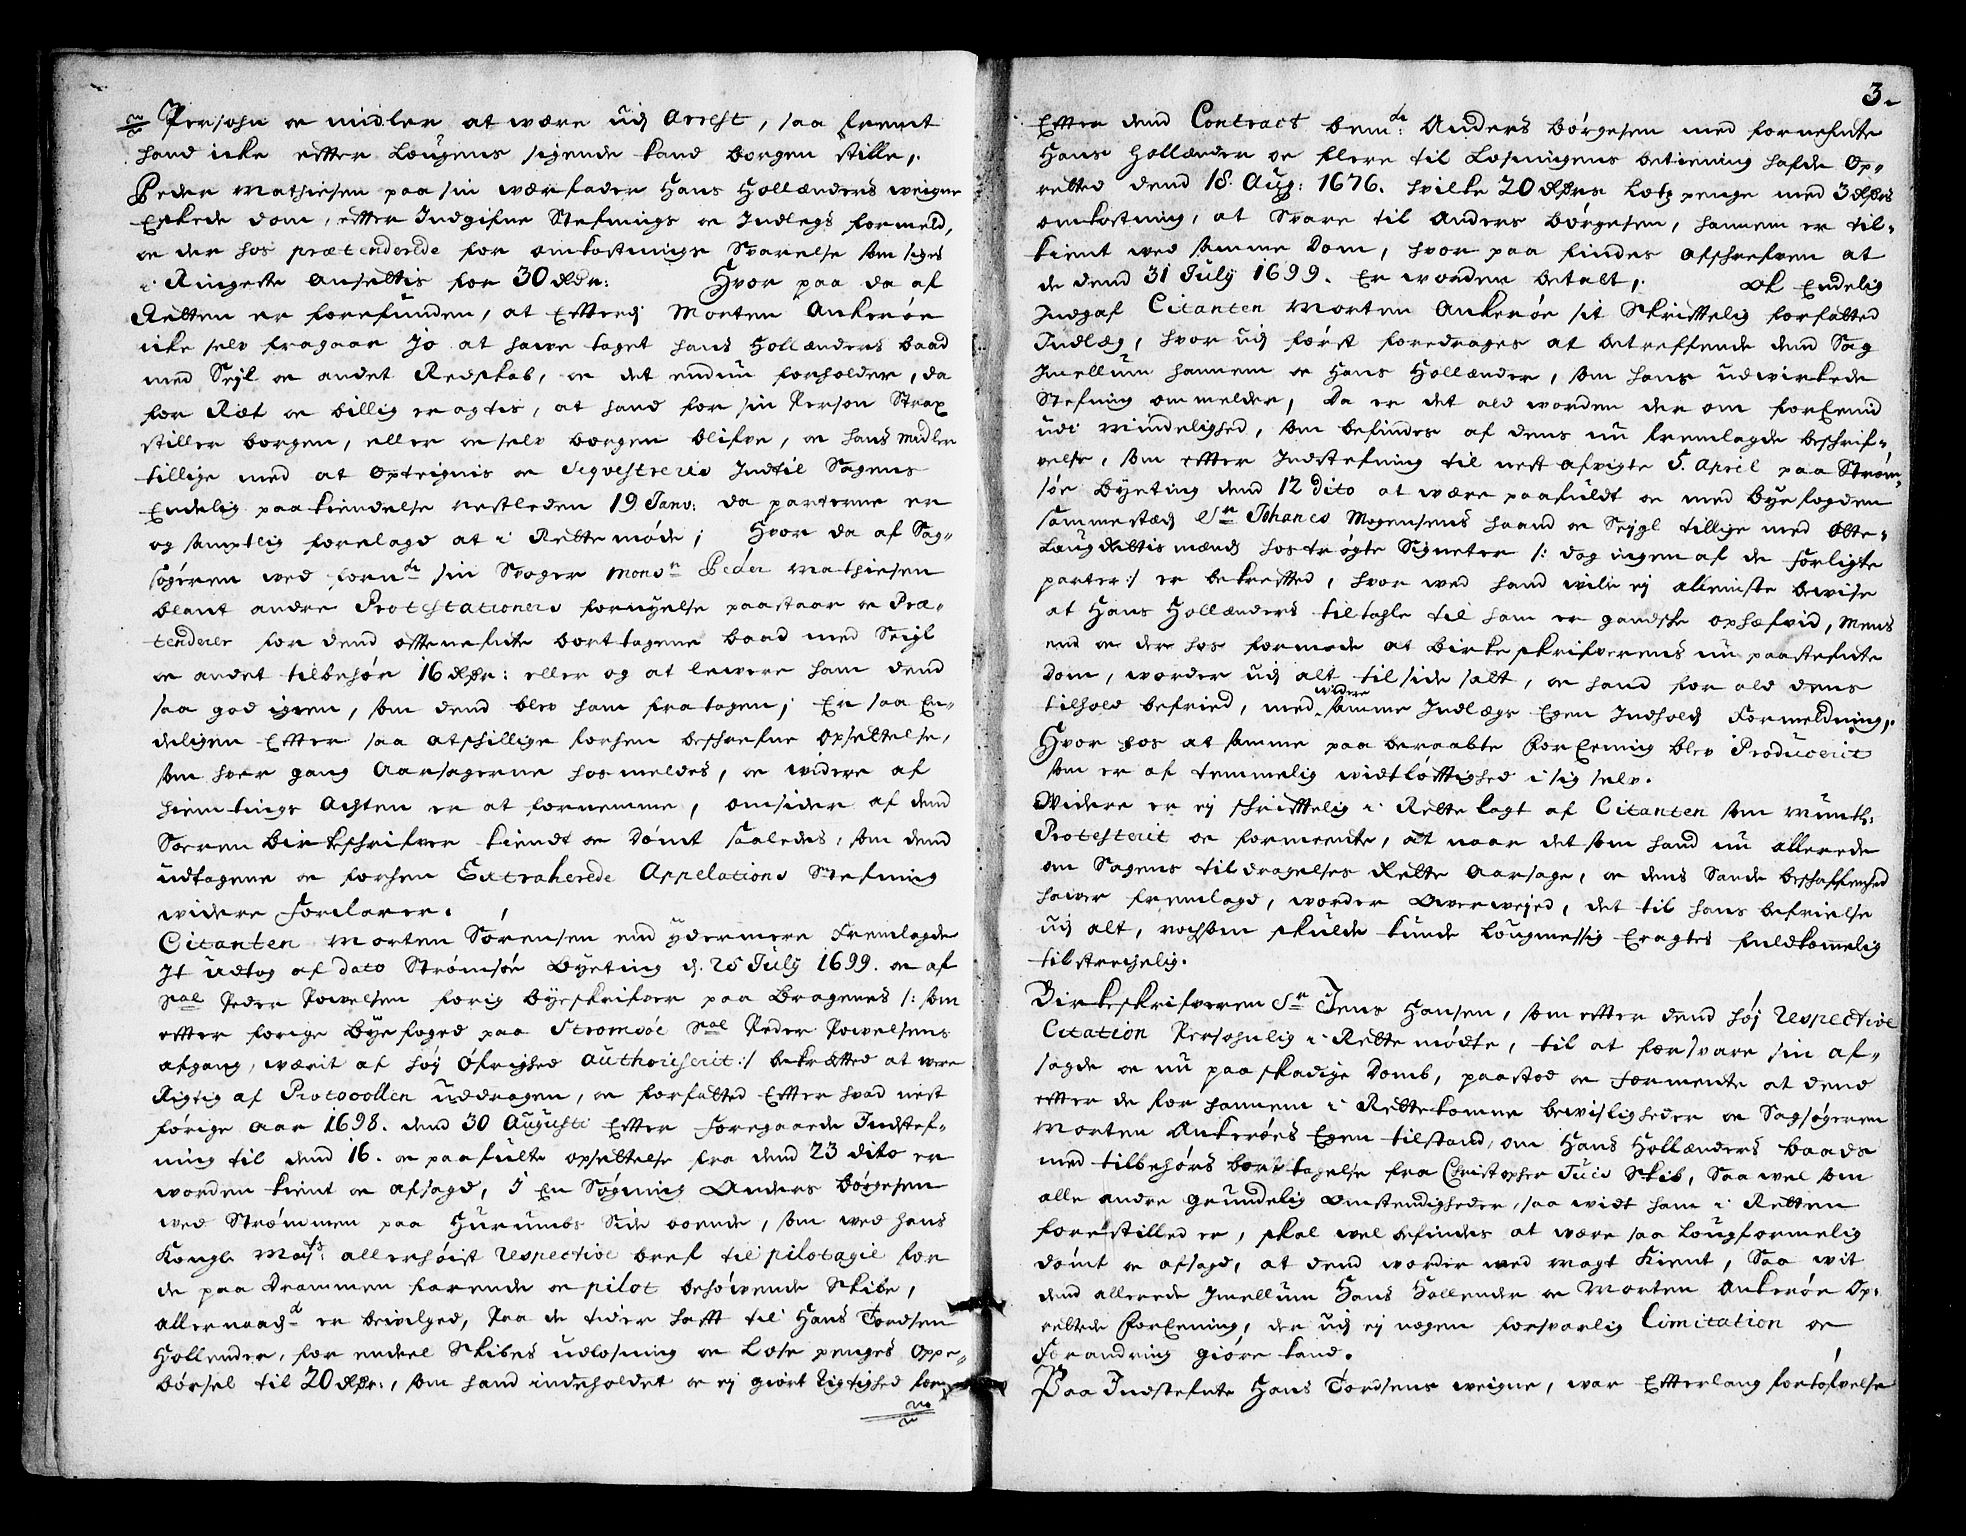 Persohn oc midler at være udj Arrest, saa fremt
hand icke efter Lougens sigende kand borgen stille,.
Peder Mathiesen paa sin værfader Hans Hollænders weigne
Eskede dom, efter Indgifne Stefnings oc Indlegs formeld,
oc der hos prætenderede for omkostninge Svarelse som siges
i Ringeste anseltis for 30 Rdr: Hvor paa da af
Retten er forefunden, at Efterdj Morten Ankerøe
icke selv fragaar jo at hawe taget Hans Hollænders baad
med Sejl oc andet Redskab, oc det endnu forholder, da
for Ræt oc billig eragtis, at hand for sin Person Strax
stiller borgen, eller oc selv borgen blifve, oc hans midler
tillige med at opteignis oc Seqvestreris Indtil Sagens
Endelig paakiendelse nestleden 19 Janv: da parterne er
og samptlig forelagd at i Rette møde; Hvor da af Sag-
søgeren ved fornde sin Svoger Monsr Peder Mathiesen
blant andre Protestationers fornyelse paastaar oc Præ-
tenderer for dend oftenefnte borttagene baad med Seigl
oc andet tilbehør 16 Rdr: eller og at lewere ham dend
saa god igien, som dend blev ham fratagen; Er saa En-
deligen Efter saa atskillige forhen beschrefne Opsettelse,
som hver gang Aarsagerne hos meldes, oc widere af
hiemtings Achten er at fornemme, omsider af dend
Soeren Birkeschrifver kiendt oc Dømt saaledes, som dend
udtagene oc forhen Extraherede Appelations Stefning
widere forclarer.
Citanten Morten Sørensen end ydermere fremlagde
It Udtog af dato Strømsøe Byeting d. 25 July 1699. oc af
Sal Peder Powelsen forig byeskrifver paa Bragenes /: som
efter forige Byefoged paa Strømsøe Sal Peder Powelsens
afgang, wærit af høj Øfrighed authoriserit :/ bekræfted at were
Rigtig af Protocollen uddragen, oc forfatted Efter hvad nest
forige Aar 1698. dend 30 Augusti Efter foregaaede Indstef-
ning til dend 16. oc paafulte opsettelse fra dend 23 dito er
worden kient oc afsagd, I En Søgning Anders Børgesen
wed Strømmen paa Hurumbs Side boende, som wed Hans
Kongl Mayts: allerhøist respective bref til pilotagie for
de paa Drammen farende oc pilot behøwende Skibe,
allernaadigst er bewilged, fra de tider haft til Hans Tordsen
Hollender, for endeel Skibes udlosning oc Lose penges Oppe-
børsel til 20 Rdr:, som hand indeholdet oc ej giort Rigtighed for
3.
Efter dend Contract bemde: Anders Børgesen med fornefnte
Hans Hollænder oc flere til Losningens betiening hafde Op-
retted dend 18. Aug: 1676. hvilke 20 Rdrs Lots penge med 3 Rdrs
omkostning, at Svare til Anders Børgesen, hannem er til-
kient wed samme Dom, hvor paa findes afschrefven at
de dend 31 July 1699. Er worden betalt,. Ok Endelig
Indgaf Citanten Morten Ankerøe sit Skriftelig forfatted
Indlæg, hvor udj først foredrages at betreffende dend Sag
Imellum hannem oc Hans Hollænder, som hans udwirkede
Stefning ommelder, Da er det ald worden der om forEenid
udi Mindelighed, som befindes af dens nu fremlagde beschrif-
velse, som efter Indstefning til nest afvigte 5. Aprel paa Strøm-
søe Byeting dend 12 dito at være paafuldt oc med Byefogden
sammestæds Sr Johanes Mogensens haand oc Seigl tillige med Otte
Laugrettismænds hostrøgte Signeter /: dog ingen af de forligte
parter :/ er bekrefted, hvor wed hand wille ej alleniste bewise
at Hans Hollænders tiltale til ham er gandske ophæfvid, mens
end oc der hos formode at Birkeskrifverens nu paastefnte
Dom, worder udj alt til side satt, oc hand for ald dens
tilhold befried, med widere samme Indlægs Egen Indholds formeldning,.
Hvor hos at samme paa beraabte forEening blev Producerit
som er af temmelig widtløftighed i sig selv.
Widere er ej schriftelig i Rette lagt af Citanten som Mundtl:
Protesterit oc formeente, at naar det som hand nu allerede
om Sagens tildragelses Rette Aarsage, oc dens Sande beschaffenhed
hawer fremlagd, worder Owerwejed, det til hans befrielse
udj alt, nochsom skulde kunde lougmessig Eragtes fuldkomelig
tilstrechelig.
Birkeskrifveren Sr Jens Hansen, som efter dend høj respective
Citation Persohnlig i Rette mødte, til at forsvare sin af-
sagde oc nu paaskadige Domb, paastod oc formente at dend
efter de for hannem i Rettekomne bewisligheder oc Sagsøgeren
Morten Ankerøes Egen tilstand, om Hans Hollænders baads
med tilbehørs borttagelse fra Christopher Juis Skib, Saa wel som
alle andre grundelig Omstendigheder, saa widt ham i Retten
forestilled er, skal wel befindes at wære saa Lougformelig
dømt oc afsagd, at dend worder wed magt Kient, Saa wit
dend allerede Imellum Hans Hollender oc Morten Ankerøe Op-
rettede forEening, der udj ej nogen forsvarlig Limitation oc
Forandring giøre kand.
Paa Indstefnte Hans Tordsens weigne, war Efterlang fortøfvelse